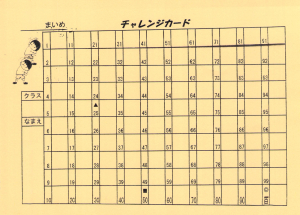 まいめ チャレンジカード
1 11 21 31 41 51 61 71 81 91
2 12 22 32 42 52 62 72 82 92
3 13 23 33 43 53 63 73 83 93
クラス 4 14 24 34 44 54 64 74 84 94
▲
5 15 25 35 45 55 65 75 85 95
なまえ 6 16 26 36 46 56 66 76 86 96
7 17 27 37 47 57 67 77 87 97
8 18 28 38 48 58 68 78 88 98
9 19 29 39 49 59 69 79 89 99
■ ◎
10 20 30 40 50 60 70 80 90 100